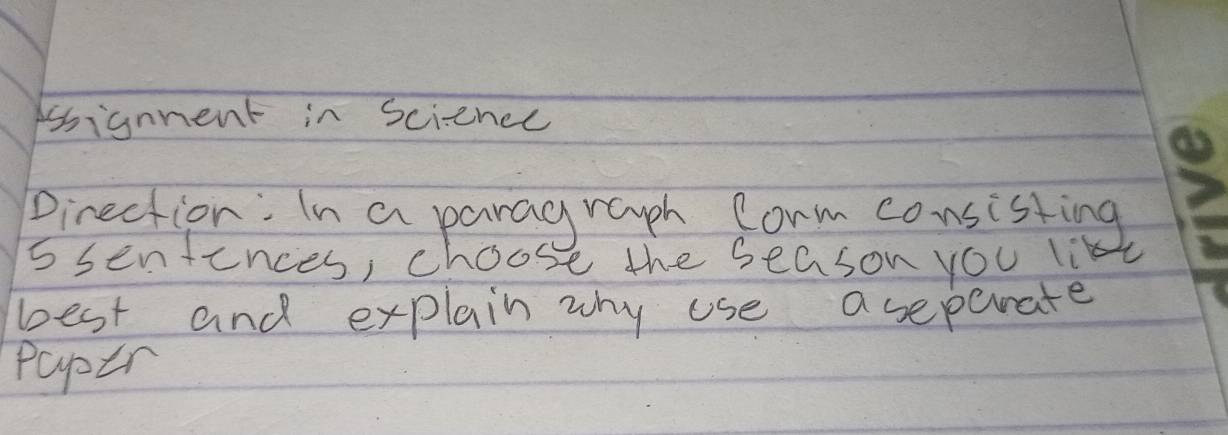 Assignment in Science
Direction: In a paragraph form consisting
5 sentences, choose the season you like
best and explain why use a separate
Paper
drive